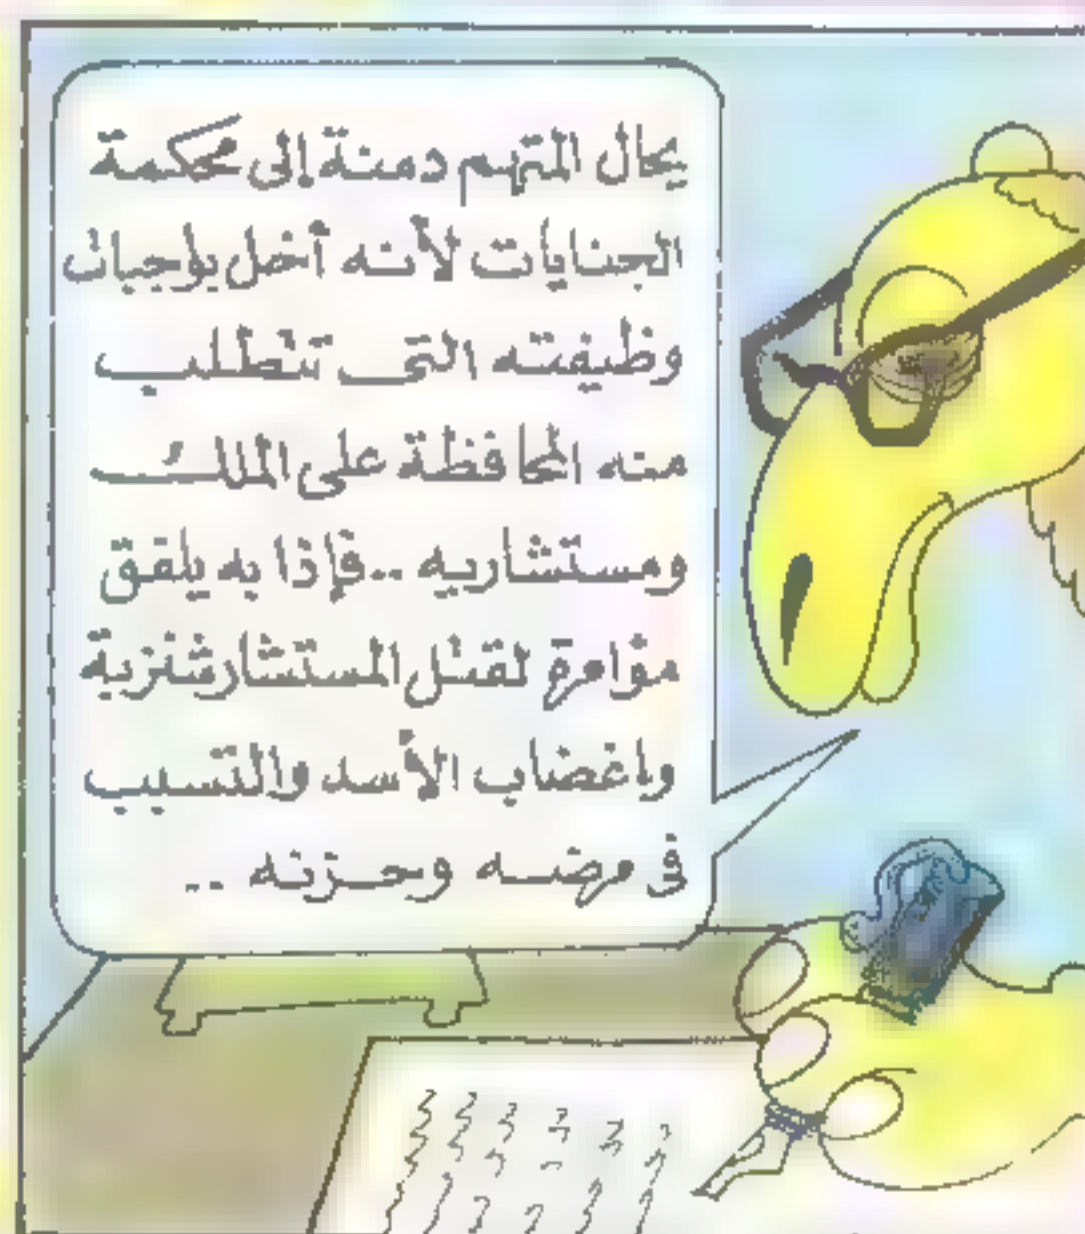 يحال المتهم دمنة إلى محكمة
الجنايات لأنه أخل بواجبات
وظيفته التى تتطلب
منه المحافظة على الملك
ومستشاريه ..فإذا به يلفق
مؤامرة لقتل المستشار شتربة
وإغضاب الأسد والتسبب
فى مرضه وحزنه ..